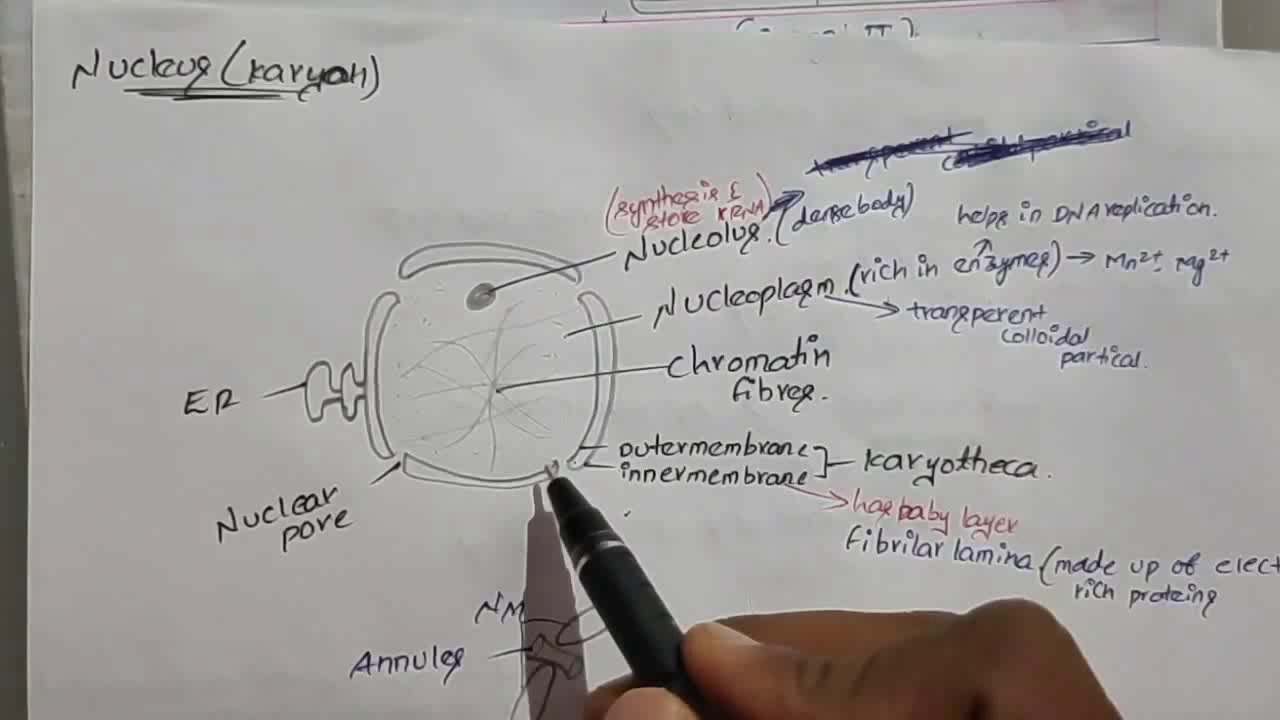 Nucleus (karyon)
(synthesis &
store rRNA)
Nucleolus. (dense body)
helps in DNA replication.
Nucleoplasm. (rich in enzymes) → Mn2+ Mg2+
transperent
colloidal
partical.
chromatin
fibres.
ER
outermembrane
innermembrane
karyotheca.
has baby layer
fibrilar lamina (made up of elect
rich proteins
Nuclear
pore
NM
Annules